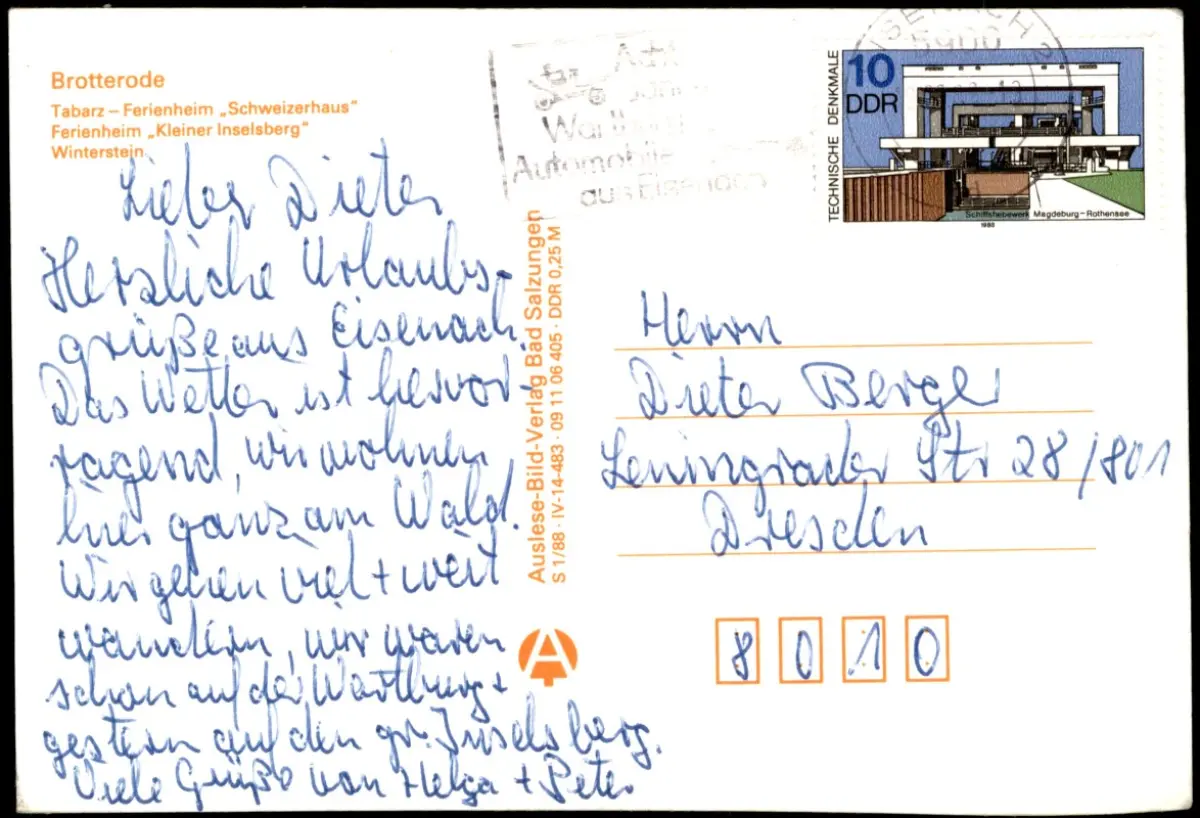 Brotterode
Tabarz – Ferienheim „Schweizerhaus“
Ferienheim „Kleiner Inselsberg“
Winterstein
Lieber Dieter
Herzliche Urlaubs-
grüße aus Eisenach.
Das Wetter ist hervor-
ragend, wir wohnen
hier ganz am Wald.
Wir gehen viel + weit
wandern, wir waren
schon auf der Wartburg +
gestern auf den gr. Inselsberg.
Viele Grüße von Helga + Peter
Auslese-Bild-Verlag Bad Salzungen
S 1/88 · IV-14-483 · 09 11 06 405 · DDR 0,25 M
A
Wartburg
Automobile
aus Eisenach
EISENACH 2
5900
TECHNISCHE DENKMALE
10
DDR
Schiffshebewerk Magdeburg – Rothensee
1988
Herrn
Dieter Berger
Leningrader Str 28/801
Dresden
8010